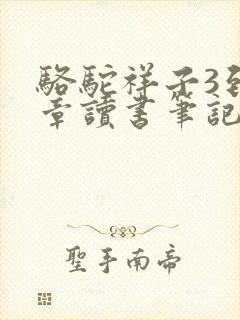 駱駝祥子3到
章讀書筆記
聖手南帝